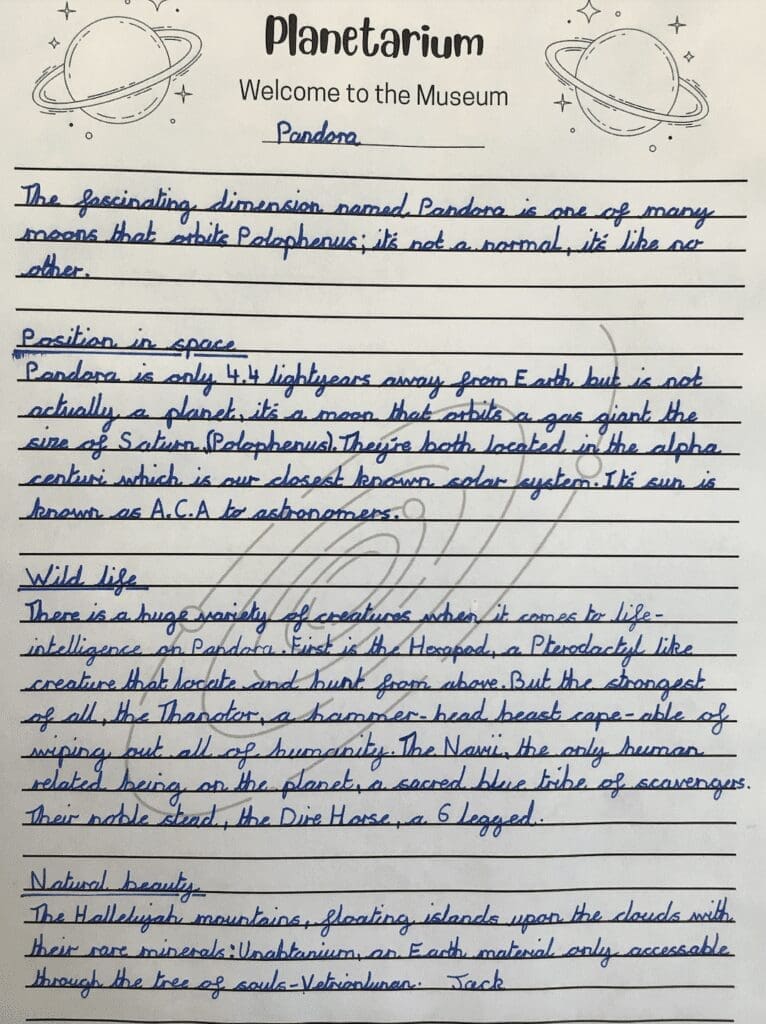 Planetarium
Welcome to the Museum
Pandora
The fascinating dimension named Pandora is one of many
moons that orbits Polophenus; it's not a normal, it's like no
other.
Position in space
Pandora is only 4.4 lightyears away from Earth but is not
actually a planet, it's a moon that orbits a gas giant the
size of Saturn (Polophenus). They're both located in the alpha
centuri which is our closest known solar system. It's sun is
known as A.C.A to astronomers.
Wild life
There is a huge variety of creatures when it comes to life-
intelligence on Pandora. First is the Hexapod, a Pterodactyl like
creature that locate and hunt from above. But the strongest
of all, the Thanator, a hammer-head beast cape-able of
wiping out all of humanity. The Navii, the only human
related being on the planet, a sacred blue tribe of scavengers.
Their noble stead, the Dire Horse, a 6 legged.
Natural beauty
The Hallelujah mountains, floating islands upon the clouds with
their rare minerals: Unobtanium, an Earth material only accessable
through the tree of souls- Jack